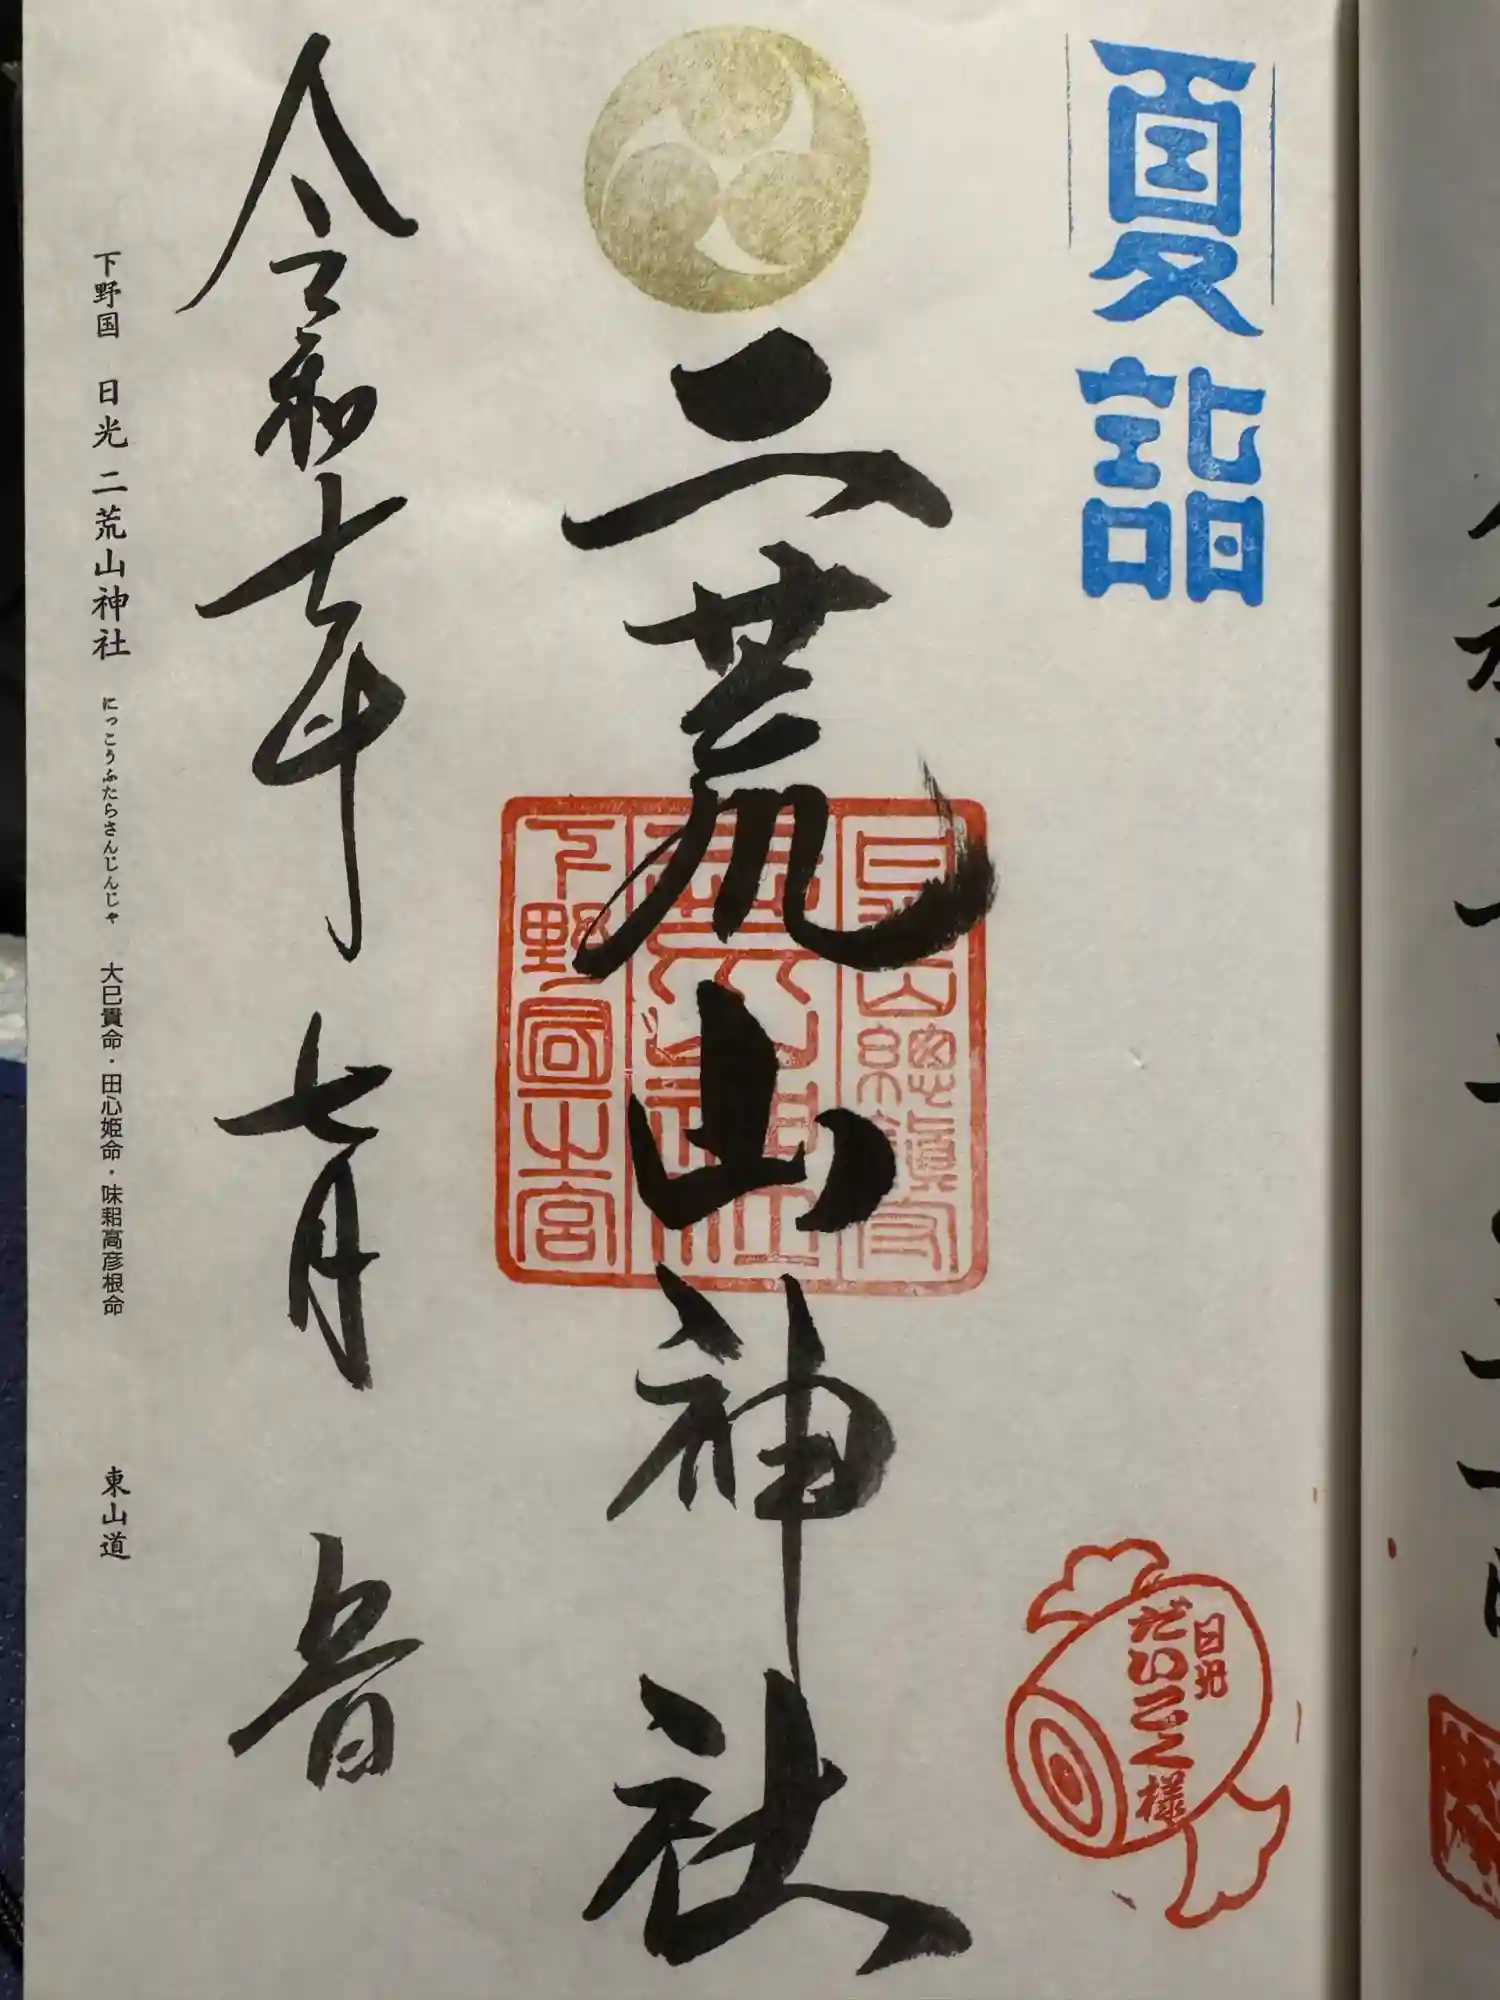 夏詣
日光
だいこく様
二荒山神社
下野国一宮
令和七年七月吉日
下野国 日光 二荒山神社 にっこうふたらさんじんじゃ 大己貴命・田心姫命・味耜高彦根命 東山道